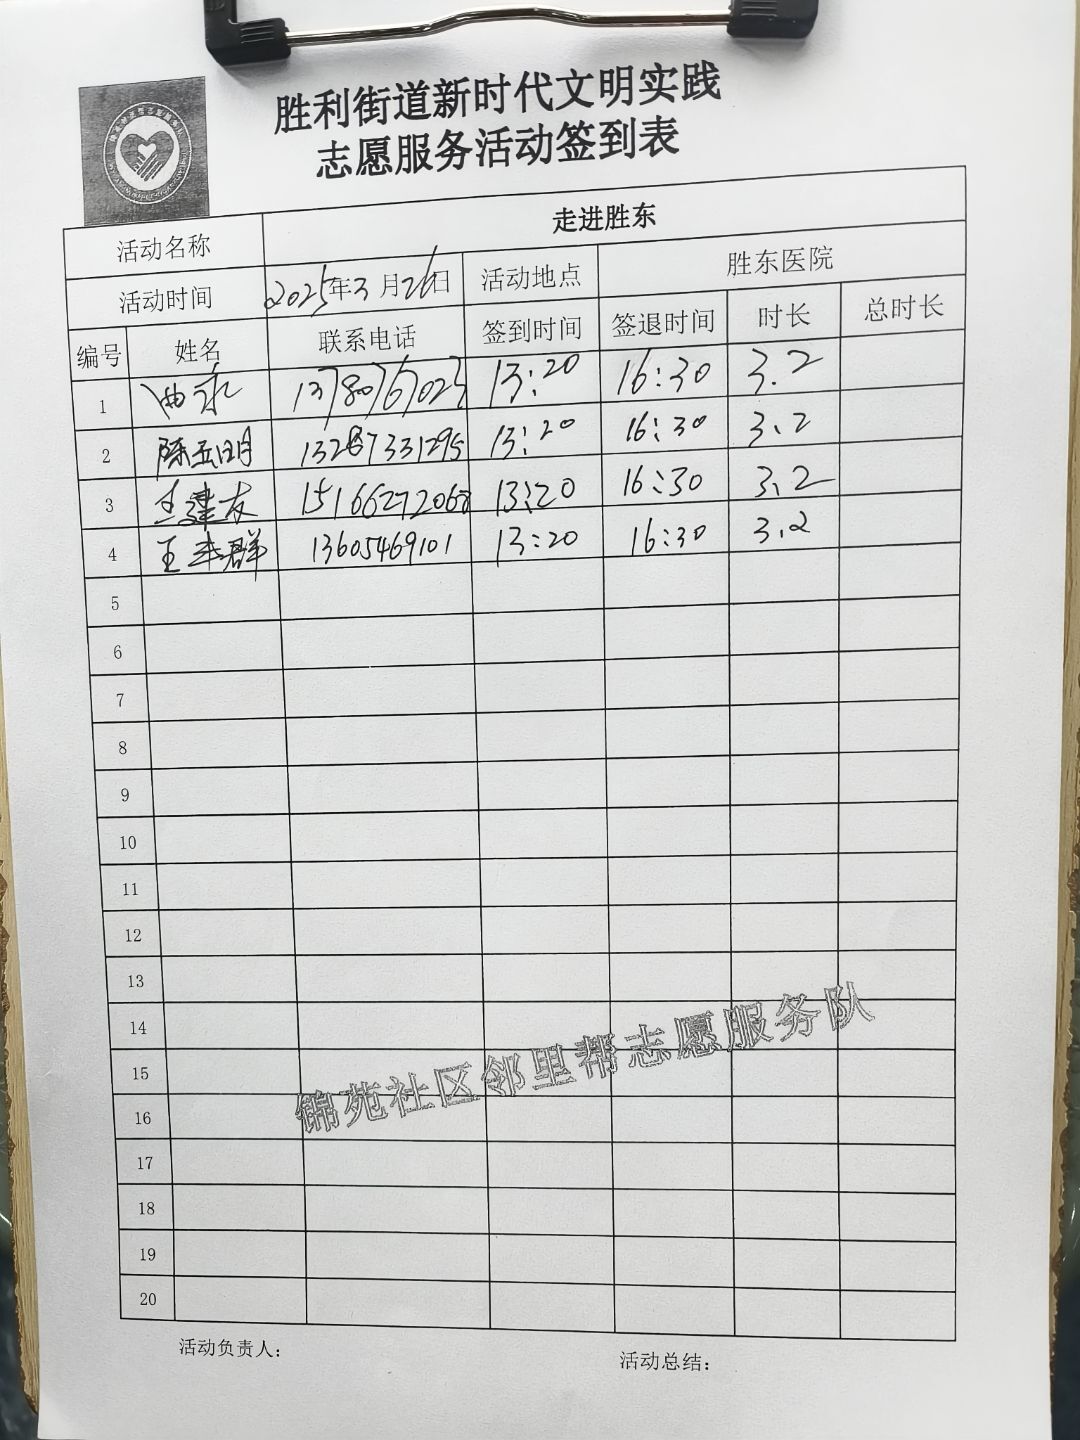 胜利街道新时代文明实践
志愿服务活动签到表
活动名称 走进胜东
活动时间 2025年3月26日 活动地点 胜东医院
编号 姓名 联系电话 签到时间 签退时间 时长 总时长
1 曲永 13780767023 13:20 16:30 3.2
2 陈玉明 13287331295 13:20 16:30 3.2
3 王建友 15166272068 13:20 16:30 3.2
4 王丰群 13605469101 13:20 16:30 3.2
5
6
7
8
9
10
11
12
13
14
锦苑社区邻里帮志愿服务队
15
16
17
18
19
20
活动负责人: 活动总结: